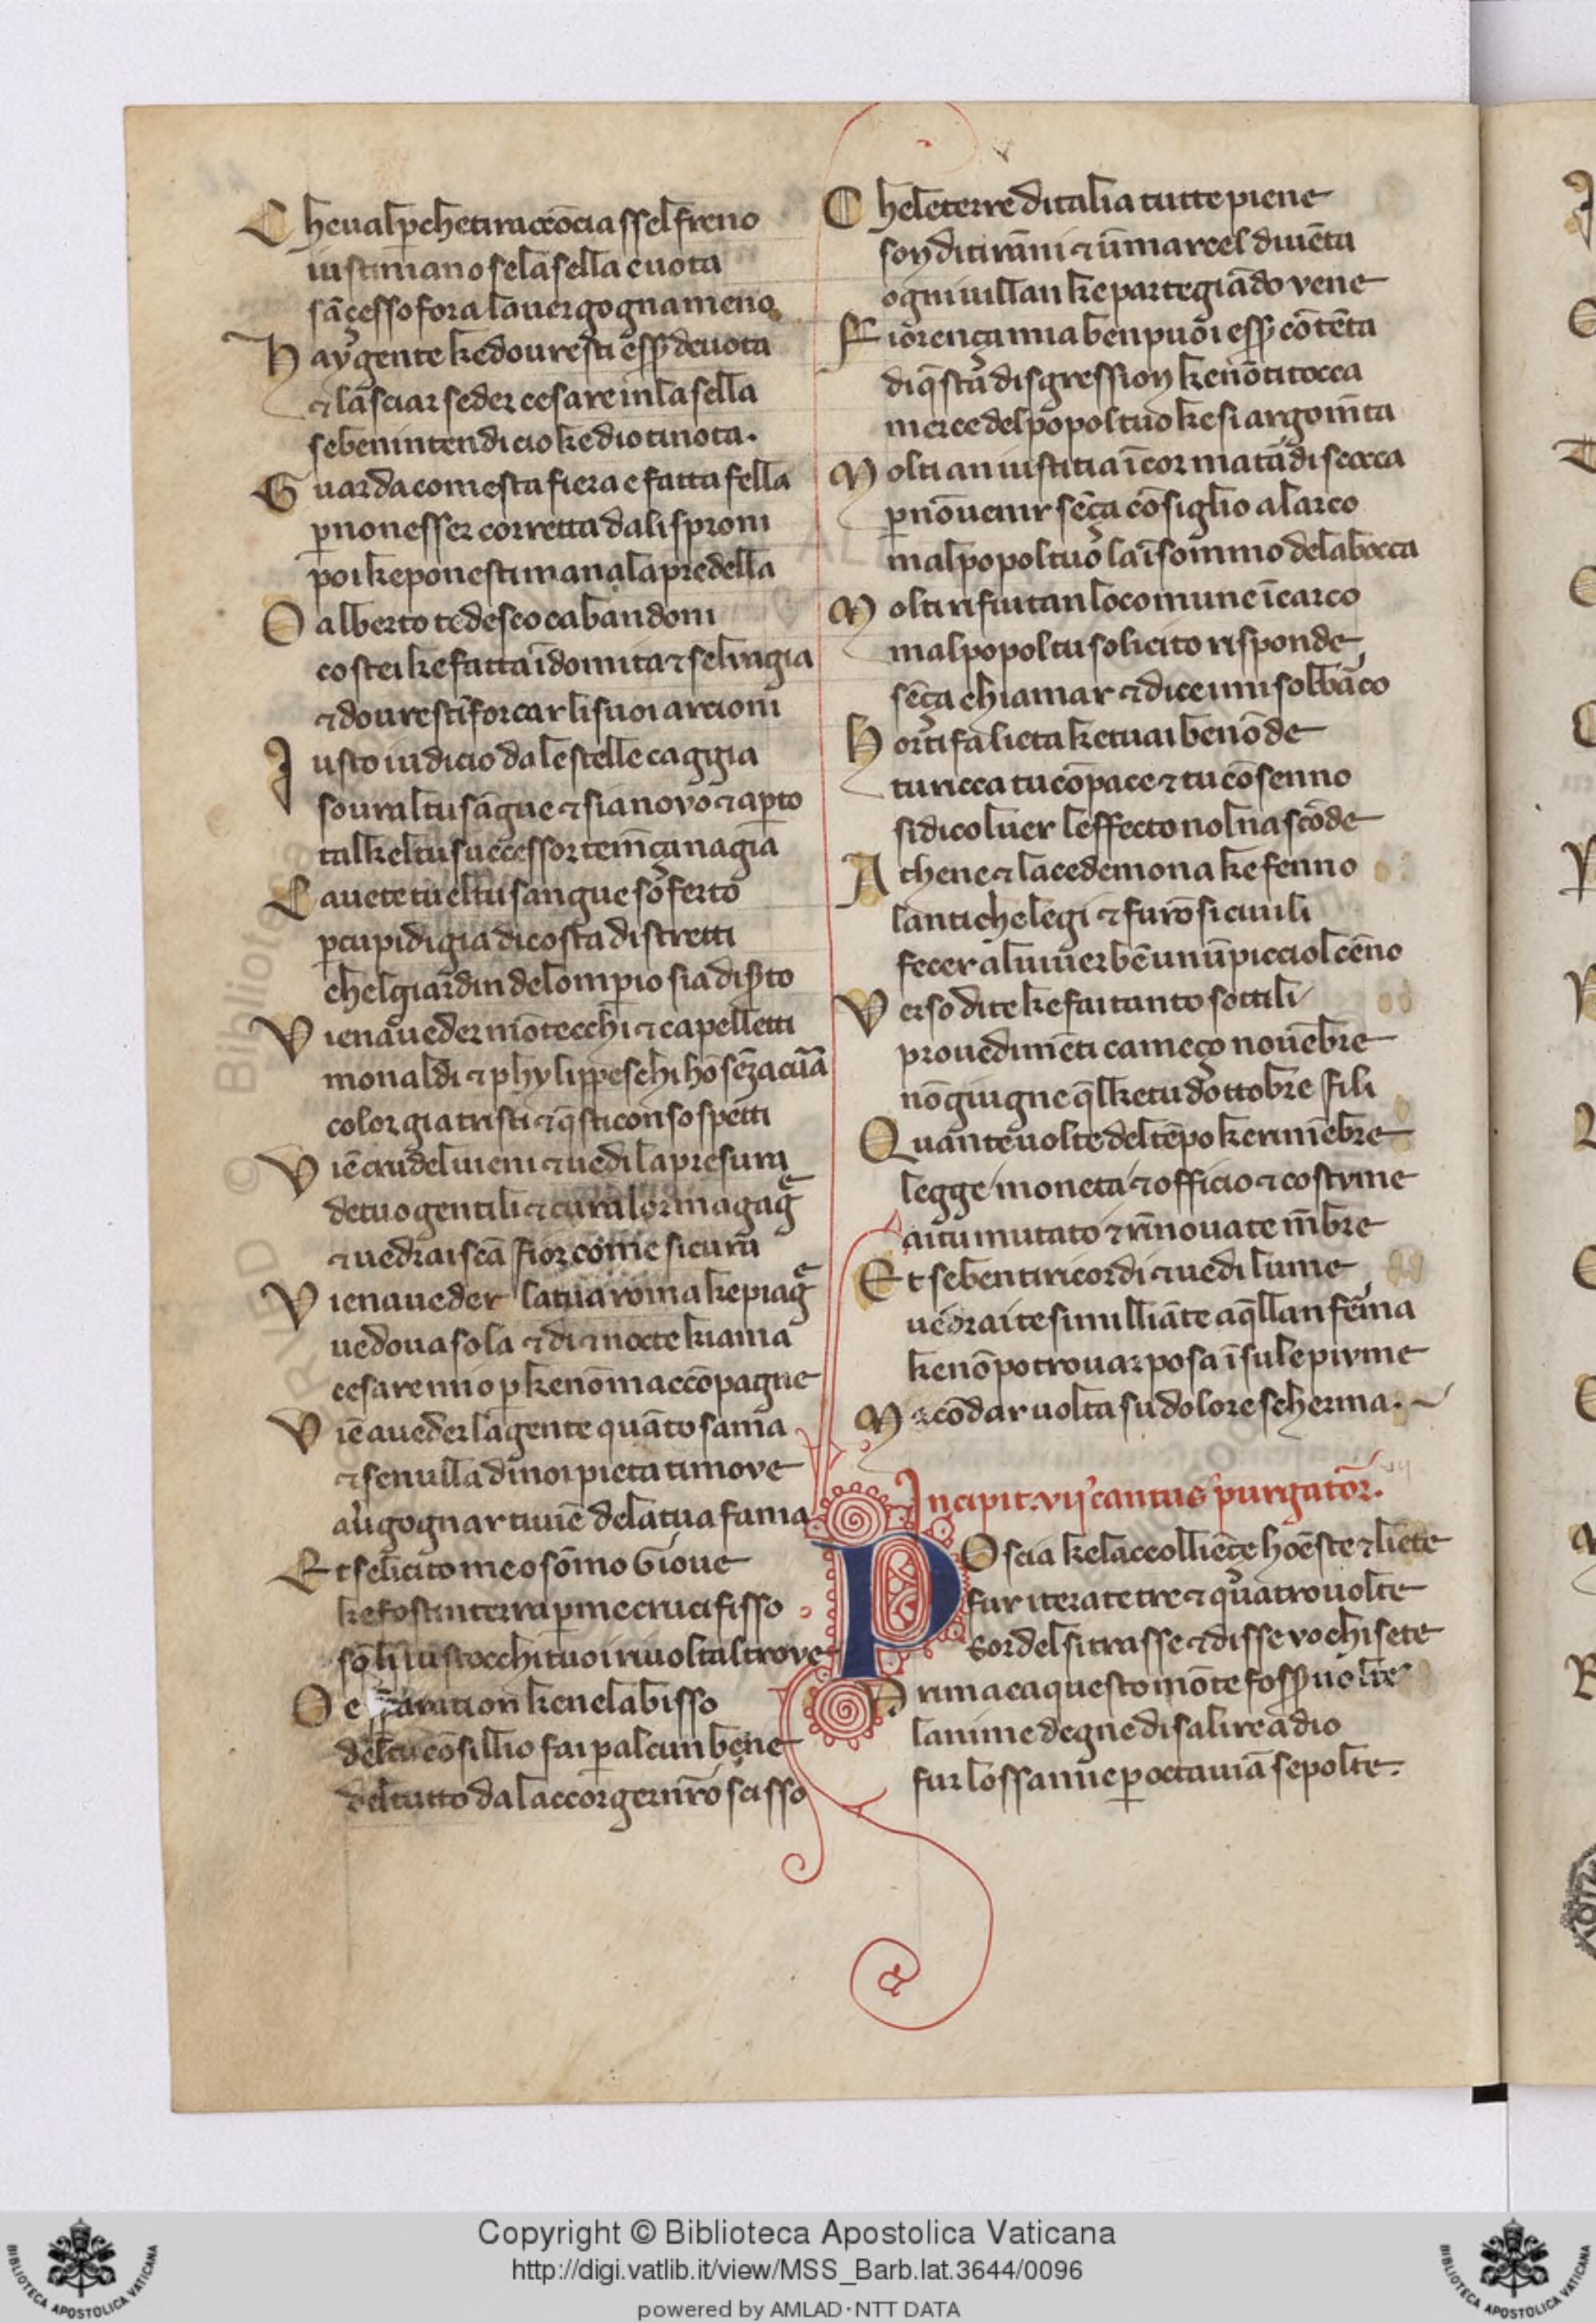 C heualp̱chetiraccōciasselfreno
iustinianoselasella euota
sāçessoforalauergognameno
H aygente kedouresti esṣdeuota
⁊lasciarsedercesareinlasella
sebenintendiciokediotinota.
G uardacomestafiera efattafella
p̱nonessercorrettadalisproni
poikeponestimanalapredella
O albertotedescocabandoni
costeikefattaīdomita⁊seluagia
⁊dourestīforcarlisuoiarcioni
I ustoiudiciodalestellecaggia
souraltusāgue⁊sianovo⁊ap̱to
talkeltusuccessortemēçanagia
C auetetueltusanguesoferto
p̱cupidigiadicostadistretti
chelgiardindelomp̱iosiadisṣto
V ienauedermōtecchi⁊capelletti
monaldi⁊phylippeschihōsēzacura
colorgiatristi⁊q̄sticonsospetti
V iēcrudeluieni⁊uedilapresura
detuogentili⁊curalormagagͤ
⁊uedraiscāfiorcomesicura
V ienaueder latuaromakepiagͤ
uedovasola ⁊di⁊noctekiama
cesaremiop̱kenōmaccōpagne
V iēauederlagente quātosama
⁊senulladinoipietatimove
au̓gognartiuiē delatuafama
E tselicitomeosōmoGioue
kefostinterrap̱mecrucifisso
sōliiustocchituoiriuoltaltrove
O e p̱paration kenelabisso
deltucōsillio faip̱alcunbene
deltutto dalaccorgernr̄oscisso
C heleterreditalia tuttepiene
sonditirāni⁊ūmarceldiuēta
ogniuillankepartegiādovene
F iorençamiabenpuoiesṣcōtēta
diq̄stadisgressionkenōtitocca
mercedelpopoltuokesiargom̄ta
M oltianiustitiaīcormatardiscocca
p̱nōuenirsēçacōsiglioalarco
malpopoltuolaīsommodelabocca
M oltirifiutanlocomuneīcarco
malpopoltusolicitorisponde
sēçachiamar⁊diceimisobbarco
H ortifalietaketuaibenōde
turiccatucōpace⁊tucōsenno
sidicoluer leffectonolnascōde
A thene⁊lacedemonakefenno
lantichelegi⁊furōsiciuili
feceralviuerbēunūpicciolcēno
V ersoditekefaitantosottili
prouedimēticameçonouēbre
nōgiugneq̄lketudottobrefili
Q uanteuoltedeltēpokerimēbre
legge moneta⁊officio⁊costvme
aitumutato⁊rinouatem̄bre
E tsebentiricordi⁊uedilume
uedraitesimilliāteaq̄llanferma
kenōpotrouarposaīsulepivme
M acōdaruoltasudolorescherma.
Incipit.vijͨcantusͥpurgator̄.
P Osciakelaccolliēçehoēste⁊liete
furiteratetre⁊quatrouolte
sordelsitrasse⁊dissevochisete
P rimacaquestomōtefosṣuolte
lanimedegnedisalireadio
furlossamiep̱octauiāsepolte.
Copyright © Biblioteca Apostolica Vaticana
http://digi.vatlib.it/view/MSS_Barb.lat.3644/0096
powered by AMLAD·NTT DATA
BIBLIOTECA APOSTOLICA VATICANA
BIBLIOTECA APOSTOLICA VATICANA